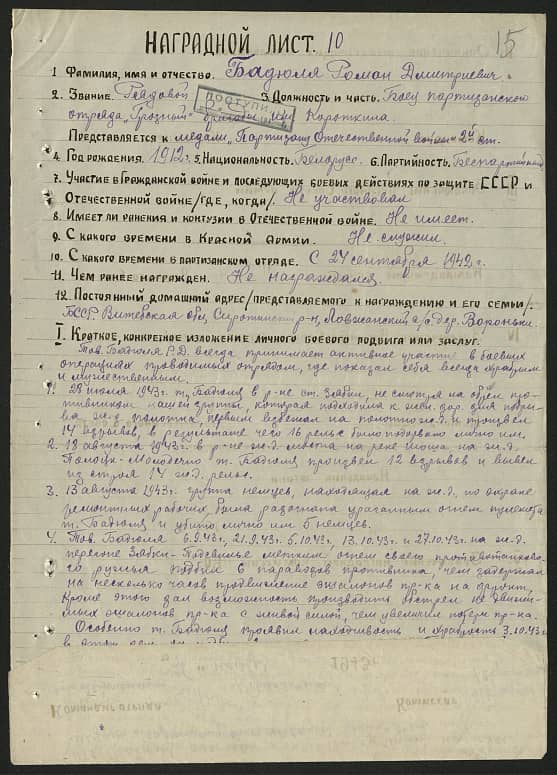 15
НАГРАДНОЙ ЛИСТ. 10
1 Фамилия, имя и отчество. Бадюля Роман Дмитриевич.
2. Звание. Рядовой 3. Должность и часть. Боец партизанского
отряда „Грозный" бригады им. Короткина.
Представляется к медали „Партизану Отечественной войны" 2й ст.
4. Год рождения. 1912 г. 5. Национальность. Белорус. 6. Партийность. Беспартийный
7. Участие в Гражданской войне и последующих боевых действиях по защите СССР и
Отечественной войне /где, когда/. Не участвовал
8. Имеет ли ранения и контузии в Отечественной войне. Не имеет.
9. С какого времени в Красной Армии. Не служил.
10. С какого времени в партизанском отряде. С 24 сентября 1942 г.
11. Чем ранее награжден. Не награждался.
12. Постоянный домашний адрес /представляемого к награждению и его семьи/:
БССР, Витебская обл, Сиротинский р-н, Ловжанский с/с дер. Вороньки.
I. Краткое, конкретное изложение личного боевого подвига или заслуг.
Тов. Бадюля Р.Д. всегда принимает активное участие в боевых
операциях проводимых отрядом, где показал себя всегда храбрым
и мужественным.
1. июля 1943г. т. Бадюля в р-не ст. не смотря на обстрел про-
тивником нашей группы, которая подходила к жел. дор. для подры-
ва ж.д. полотна, первым взбежал на полотно ж.д. и произвел
14 взрывов, в результате чего 16 рельс было подорвано лично им.
2. августа 1943г. в р-не ж.д. моста на реке на ж.д.
Полоцк-Молодечно т. Бадюля произвел 12 взрывов и вывел
из строя 14 ж.д. рельс.
3. 13 августа 1943г. группа немцев, находящая на ж.д. по охране
ремонтных рабочих была разогнана ураганным огнем пулемета
т. Бадюля и убито лично им 5 немцев.
4. Тов. Бадюля 6.9.43г., 21.9.43г. 5.10.43г. 13.10.43г и 27.10.43г. на ж.д.
перегоне метким огнем своего противотанково-
го ружья подбил 6 паровозов противника, чем задержал
на несколько часов продвижение эшелонов пр-ка на фронт,
кроме этого дал возможность производить обстрел
эшелонов пр-ка с живой силой, чем увеличил потери пр-ка.
Особенно т. Бадюля проявил находчивость и храбрость 3.10.43г.
1943г
Командир отряда Комиссар